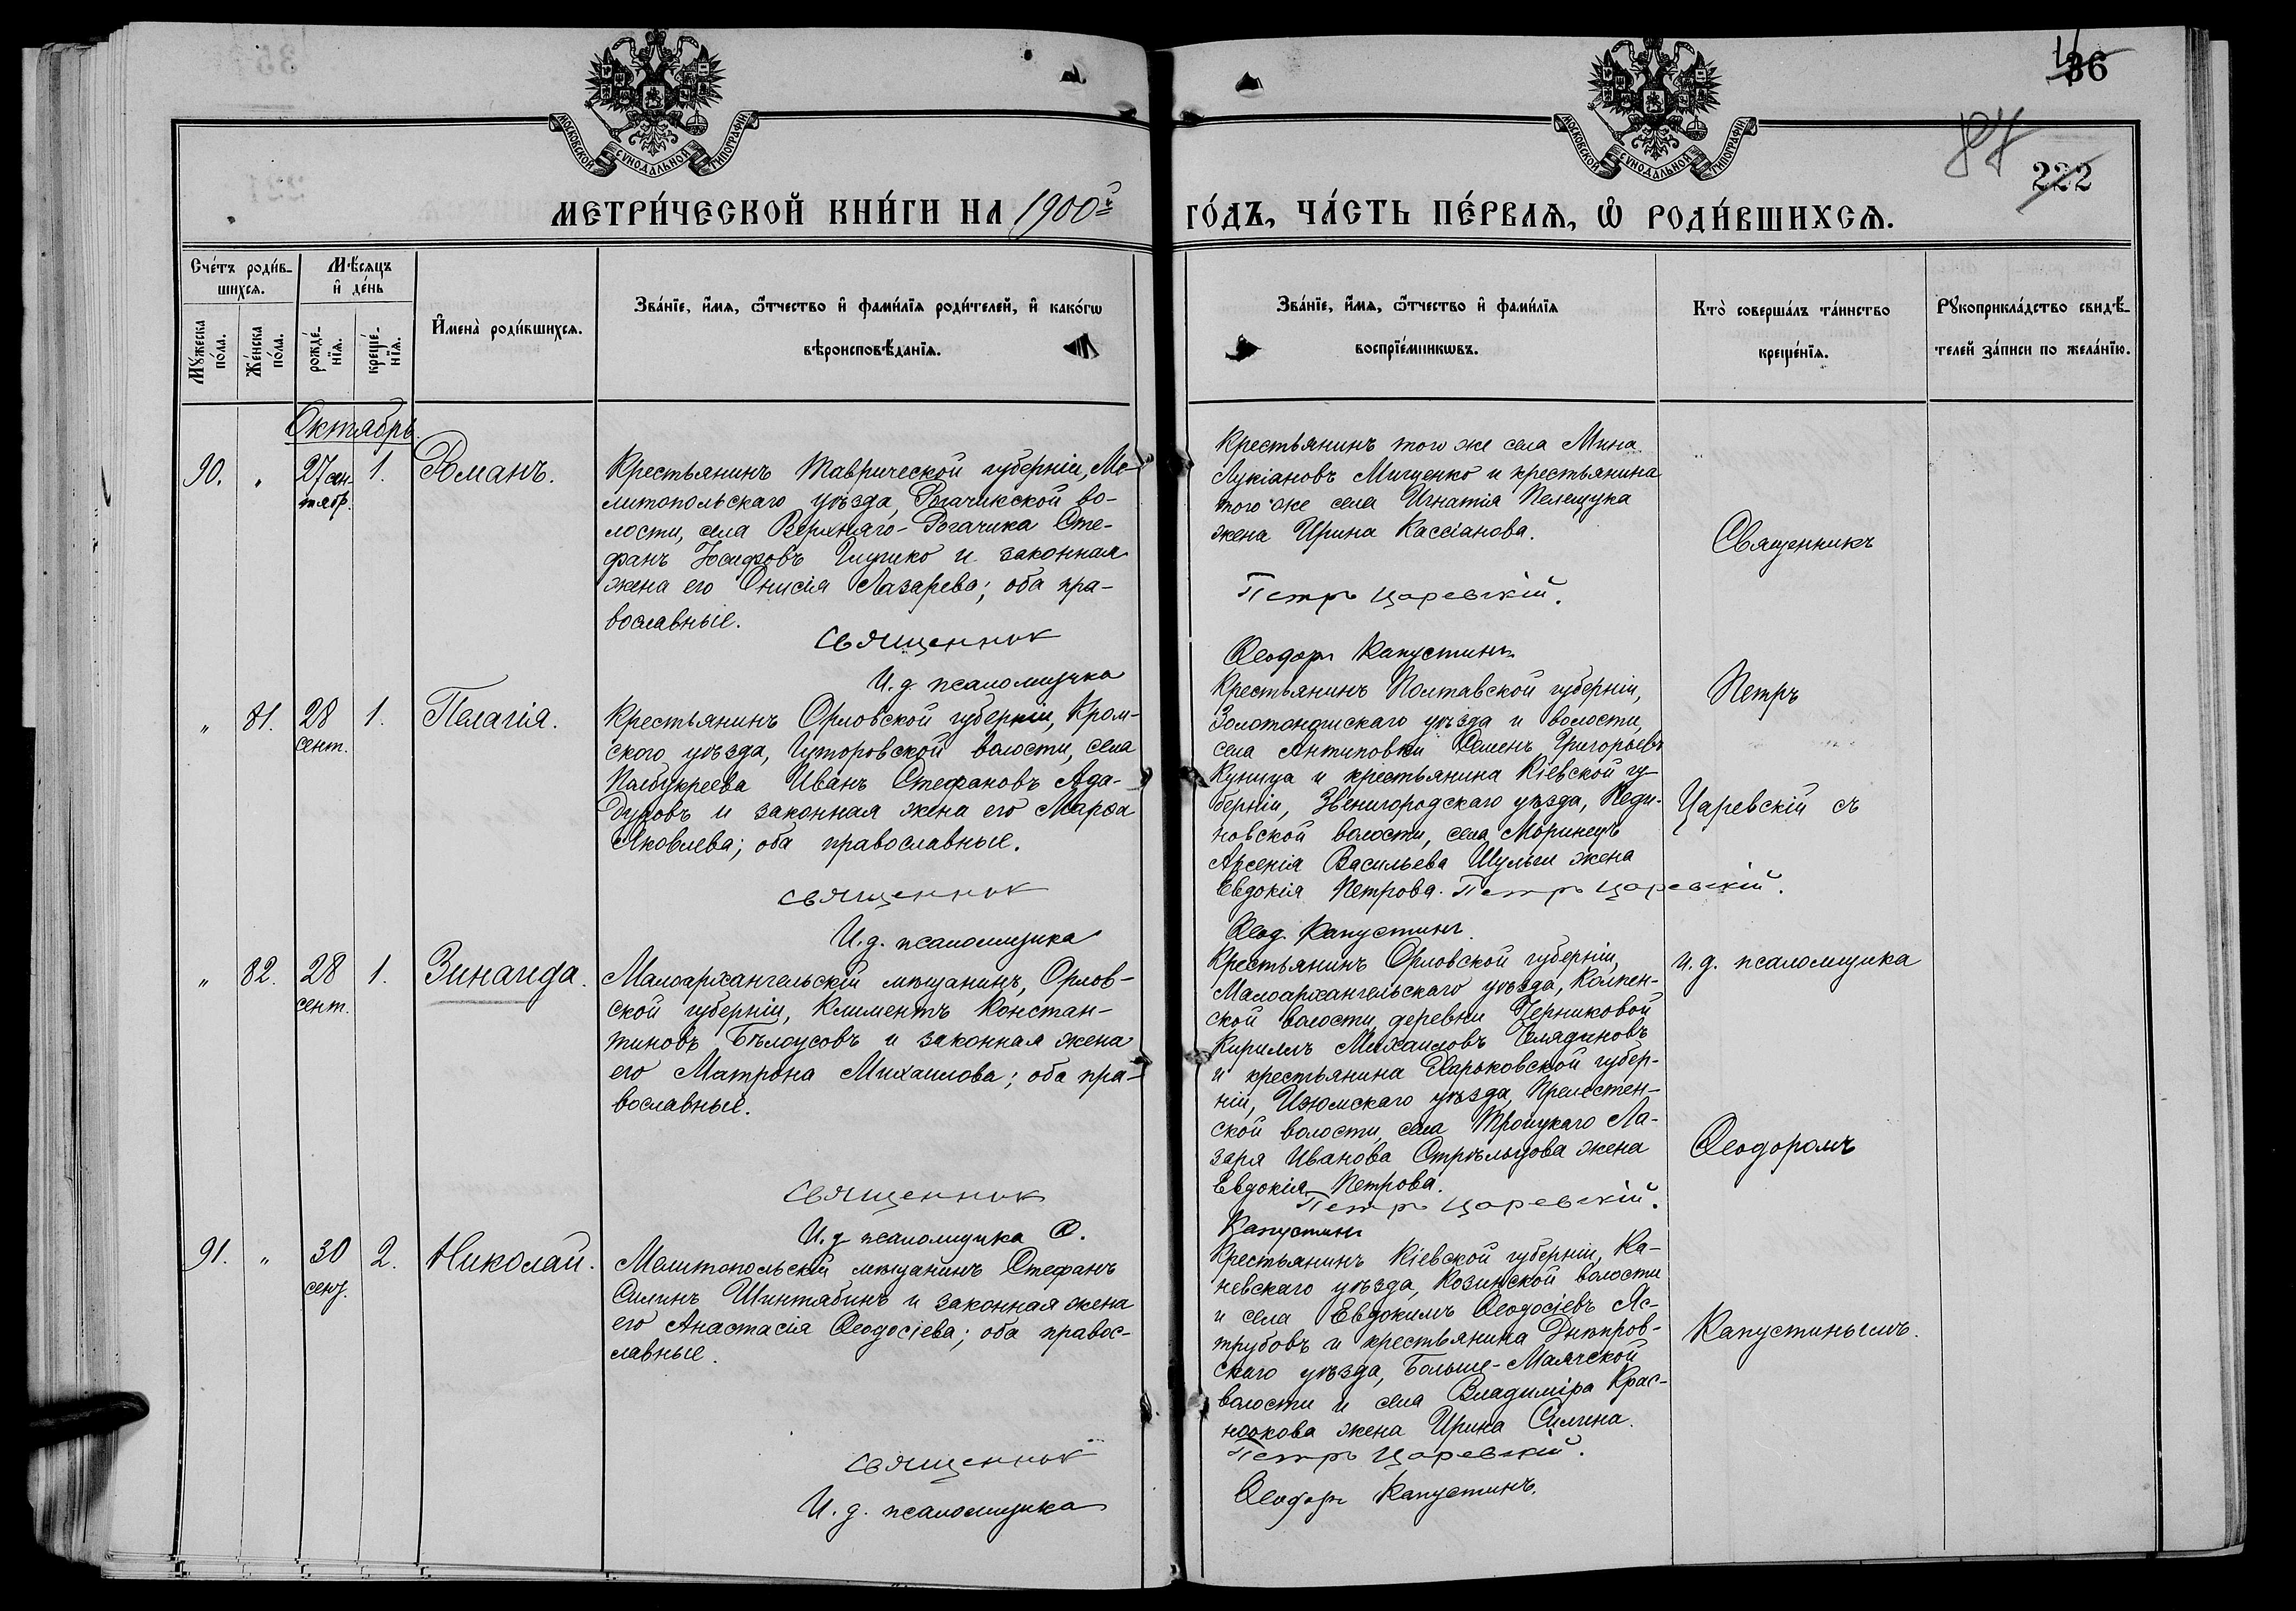 36
87
222
МОСКОВСКОЙ СѴНОДАЛЬНОЙ ТИПОГРАФІИ
МОСКОВСКОЙ СѴНОДАЛЬНОЙ ТИПОГРАФІИ
МЕТРИ́ЧЕСКОЙ КНИ́ГИ НА 1900й
ГО́ДЪ, ЧА́СТЬ ПЕ́РВАѦ, Ѡ҆ РОДИ́ВШИХСѦ.
Сче́тъ роди́в-
шихсѧ.
Мꙋ́жеска
по́ла.
Же́нска
по́ла.
Мѣ́сѧцъ
и҆ де́нь
рожде́-
нїѧ.
креще́-
нїѧ.
И҆мена̀ роди́вшихсѧ.
Зва́нїе, и҆́мѧ, ѻ҆́тчество и҆ фами́лїѧ роди́телей, и҆ како́гѡ
вѣроисповѣ́данїѧ.
Зва́нїе, и҆́мѧ, ѻ҆́тчество и҆ фами́лїѧ
воспрїе́мникѡвъ.
Кто̀ соверша́лъ та́инство
креще́нїѧ.
Рꙋкоприкла́дство свидѣ́-
телей за́писи по жела́нїю.
Октябрь.
90. „ 27 сен-
тябр. 1. Романъ.
Крестьянинъ Таврической губерніи, Ме-
литопольскаго уѣзда, Рогачикской во-
лости, села Верхняго-Рогачика Сте-
фанъ Іосифовъ и законная
жена его Онисія Лазарева; оба пра-
вославные.
священник
И. д. псаломщика
Крестьянинъ того же села Мина
Лукіановъ Мищенко и крестьянина
того же села Игнатія Пелещука
жена Ирина Кассіанова.
Петръ Царевскій.
Ѳеодоръ Капустинъ
Священникъ
Петръ
Царевскій съ
и. д. псаломщика
Ѳеодоромъ
Капустинымъ.
„ 81. 28
сент. 1. Пелагія.
Крестьянинъ Орловской губерніи, Кром-
ского уѣзда, волости, села
Иванъ Стефановъ Ада-
дуровъ и законная жена его Марѳа
Яковлева; оба православные.
священник
И. д. псаломщика
Крестьянинъ Полтавской губерніи,
Золотоношскаго уѣзда и волости,
села Антиповки Семенъ Григорьевъ
Куница и крестьянина Кіевской гу-
берніи, Звенигородскаго уѣзда, Педи-
новской волости, села Моринецъ
Арсенія Васильева Шульги жена
Евдокія Петрова. Петръ Царевскій.
Ѳеод. Капустинъ
„ 82. 28
сент. 1. Зинаида.
Малоархангельскій мѣщанинъ, Орлов-
ской губерніи, Климентъ Констан-
тиновъ Бѣлоусовъ и законная жена
его Матрона Михаилова; оба пра-
вославные.
священник
И. д. псаломщика Ѳ.
Крестьянинъ Орловской губерніи,
Малоархангельскаго уѣзда, Колпен-
ской волости, деревни Черниковой
Кириллъ Михаиловъ
и крестьянина Харьковской губер-
ніи, Изюмскаго уѣзда, Прелестен-
ской волости, села Троицкаго Ла-
заря Иванова Стрѣльцова жена
Евдокія Петрова.
Петръ Царевскій.
Капустинъ
91. „ 30
сент. 2. Николай.
Мелитопольскій мѣщанинъ Стефанъ
Силинъ Шинтябинъ и законная жена
его Анастасія Ѳеодосіева; оба правос-
лавные.
священник
И. д. псаломщика
Крестьянинъ Кіевской губерніи, Ка-
невскаго уѣзда, Козинской волости
и села Евдокимъ Ѳеодосіевъ Яс-
трубовъ и крестьянина Днѣпров-
скаго уѣзда, Больше-Маячской
волости и села Владиміра Крас-
нокова жена Ирина Силина.
Петръ Царевскій.
Ѳеодоръ Капустинъ.